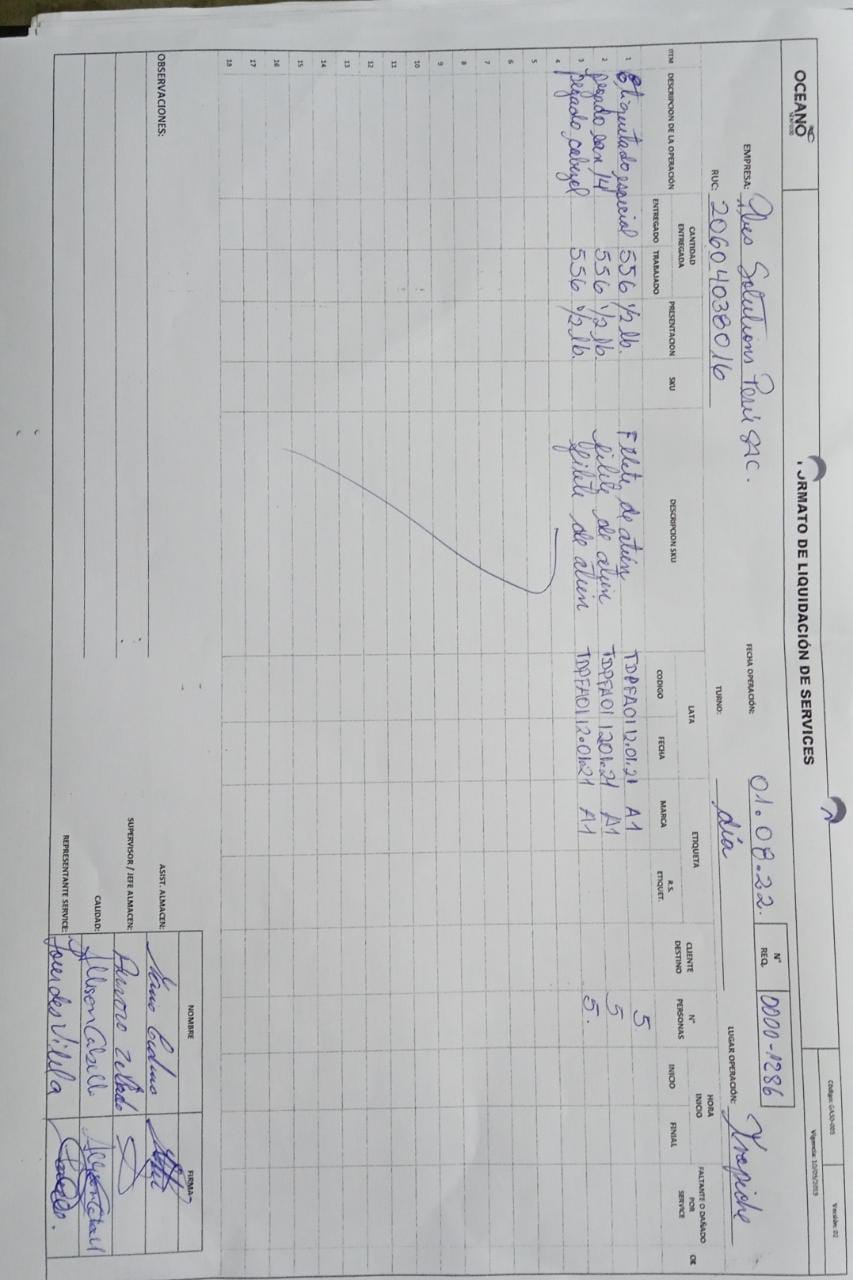 OCEANO
SEAFOOD
FORMATO DE LIQUIDACIÓN DE SERVICES
Código: GA50-005
Versión: 02
Vigencia: 10/05/2019
EMPRESA: Solutions Perú SAC.
FECHA OPERACIÓN: 01.08.22.
N° REQ. 0000-1286
RUC: 20604038016
TURNO: día
LUGAR OPERACIÓN: Trapiche
ITEM DESCRIPCION DE LA OPERACIÓN CANTIDAD ENTREGADA PRESENTACION SKU DESCRIPCION SKU LATA ETIQUETA CLIENTE DESTINO N° PERSONAS HORA INICIO FALTANTE O DAÑADO POR SERVICE OK
ENTREGADO TRABAJADO CODIGO FECHA MARCA R.S. ETIQUET. INICIO FINIAL
1 Etiquetado especial 556 1/2 lb. Filete de atún TDPFA01 12.01.21 A1 5
2 pegado 556 1/2 lb. filete de atún TDPFA01 12.01.21 A1 5
3 pegado cabezel 556 1/2 lb. filete de atún TDPFA01 12.01.21 A1 5.
4
5
6
7
8
9
10
11
12
13
14
15
16
17
18
OBSERVACIONES:
NOMBRE FIRMA
ASIST. ALMACEN:
SUPERVISOR / JEFE ALMACEN:
CALIDAD: Allison
REPRESENTANTE SERVICE: Lourdes Vilela